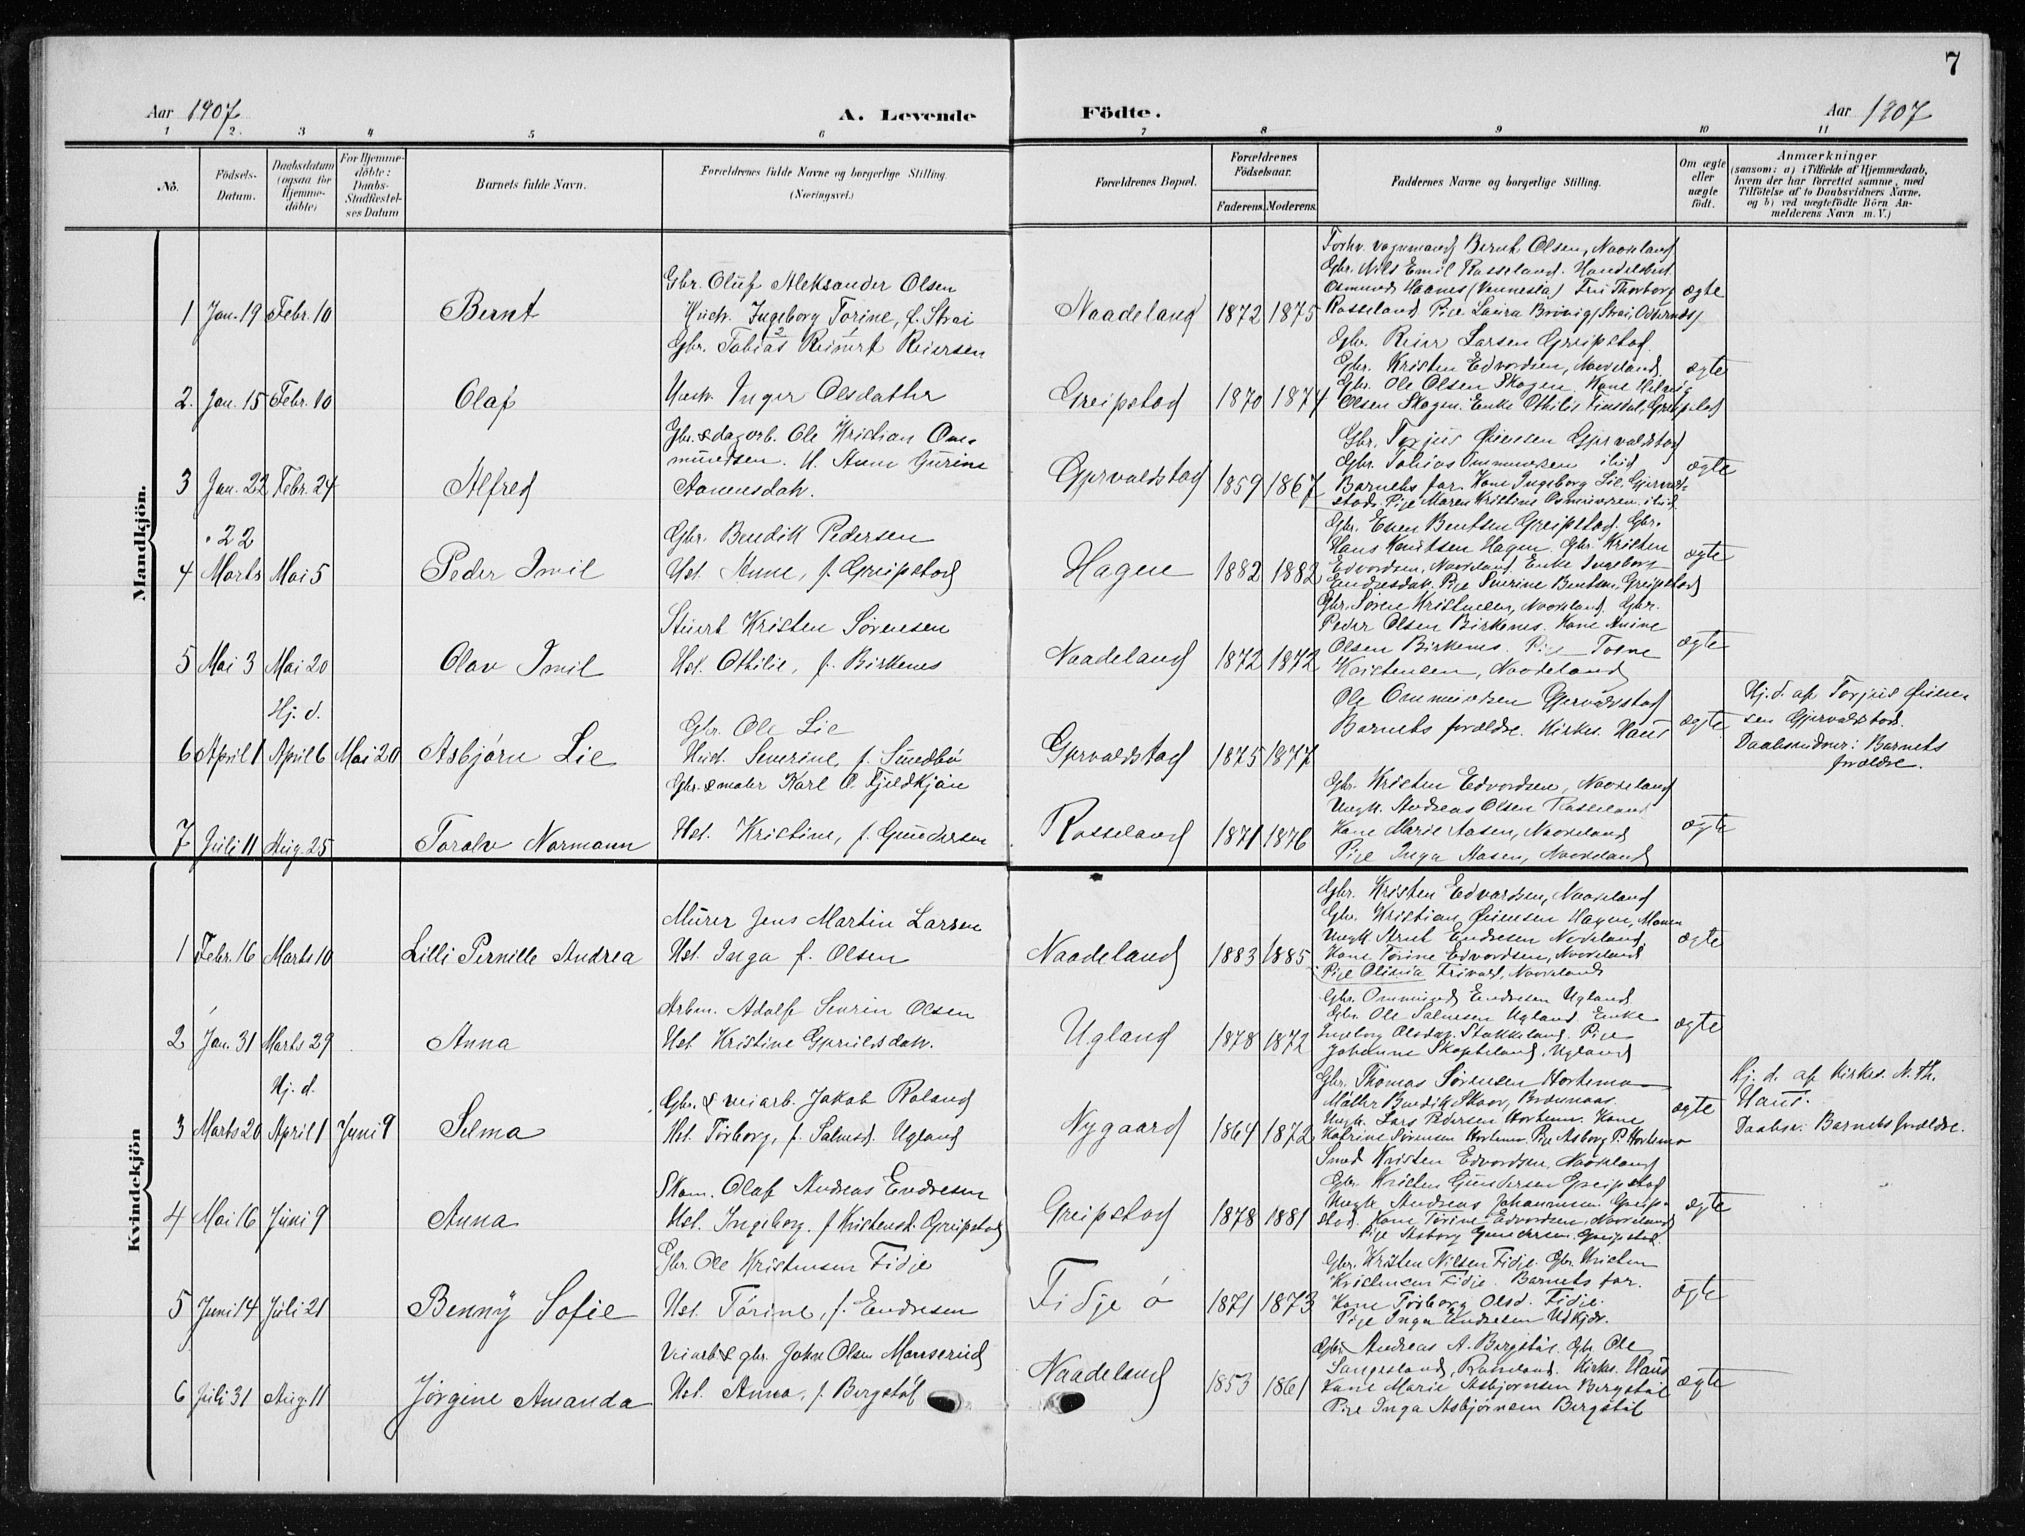 7
Aar 1907
A. Levende
Födte.
Aar 1907
1 2. 3 4 5 6 7 8 9 10 11
No.
Födsels-
Datum.
Daabsdatum
(ogsaa for
Hjemme-
döbte)
For Hjemme-
döbte:
Daabs-
Stadfæstel-
ses Datum
Barnets fulde Navn.
Forældrenes fulde Navne og borgerlige Stilling.
(Næringsvei.)
Forældrenes Bopæl.
Forældrenes
Födselsaar.
Faderens. Moderens.
Faddernes Navne og borgerlige Stilling.
Om ægte
eller
uægte
födt.
Anmærkninger
(saasom: a) i Tilfælde af Hjemmedaab,
hvem der har forrettet samme, med
Tilföielse af to Daabsvidners Navne,
og b) ved uægtefödte Börn An-
melderens Navn m. V.)
Mandkjön.
1 Jan. 19 Febr. 10
Bernt
Gbr. Oluf Aleksander Olsen
Hust. Ingeborg Torine, f. Strai
Naadeland 1872 1875
Forhv. vognmand Bernt Olsen, Naadeland
Gbr. Nils Emil Rosseland. Handelsbest.
Osmund Haanes (Vennesla) Fru Thorborg
Rosseland Pige Laura Brövig (Strai, Oddernes)
ægte
2. Jan. 15 Febr. 10
Olaf
Gbr. Tobias Reinert Reiersen
Hust. Inger Olsdatter
Greipstad 1870 1874
Gbr. Reier Larsen Greipstad.
Gbr. Kristen Edvardsen, Naadeland.
Gbr. Ole Olsen Skogen. Kone
Olsen Skogen. Enke Othilie Finsdal, Greipstad
ægte
3 Jan. 22 Febr. 24
Alfred
Gbr. & dagarb. Ole Kristian Om-
mundsen. H. Anne Gurine
Aanensdatr.
Gjervaldstad 1859 1867
Gbr. Torjus Øiensen Gjervaldstad
Gbr. Tobias Ommundsen ibid
Barnets far. Kone Ingeborg Lie, Gjervald-
stad. Pige Maren Kristine Osmundsen ibid.
ægte
4 22 Marts Mai 5
Peder Emil
Gbr. Bendik Pedersen
Hst. Anne, f. Greipstad
Hagen 1882 1882
Gbr. Even Bentsen Greipstad. Gbr.
Hans Knutsen Hagen. Gbr. Kristen
Edvardsen, Naadeland. Enke Ingeborg
Endresdatr. Pige Severine Bentsen, Greipstad
ægte
5 Mai 3 Mai 20
Olav Emil
Stuert Kristen Sørensen
Hst. Othilie, f. Birkenes
Naadeland 1872 1872
Gbr. Søren Kristensen, Naadeland. Gbr.
Peder Olsen Birkenes. Kone Anine
Olsen Birkenes. Pige Tone
Kristensen, Naadeland
ægte
Hj. d.
6 April 1 April 6 Mai 20
Asbjørn Lie
Gbr. Ole Lie
Hust. Severine, f. Smedbö
Gjervaldstad 1875 1877
Ole Ommundsen Gjervaldstad
Barnets forældre. Kirkes. Haus
ægte
Hj. d. af Torjus Øien-
sen Gjervaldstad.
Daabsvidner: Barnets
forældre.
7 Juli 11 Aug. 25
Toralv Normann
Gbr. & maler Karl O. Fjeldkjön
Hst. Kristine, f. Gundersen
Rosseland 1871 1876
Gbr. Kristen Edvardsen, Naadeland
Ungk. Andreas Olsen Rosseland
Kone Marie Aasen, Naadeland
Pige Inga Aasen, Naadeland
ægte
Kvindekjön
1 Febr. 16 Marts 10
Lilli Pernille Andrea
Murer Jens Martin Larsen
Hst. Inga f. Olsen
Naadeland 1883 1885
Gbr. Kristen Edvardsen, Naadeland
Gbr. Kristian Øiensen Hagen,
Ungk. Arnt Endresen Nodeland
Kone Torine Edvardsen, Naadeland
Pige Olivia Frivold, Naadeland
ægte
2 Jan. 31 Marts 29
Anna
Arbm. Adolf Severin Olsen
Hst. Kristine Gjeruldsdatr.
Ugland 1878 1872
Gbr. Ommund Endresen Ugland
Gbr. Ole Salvesen Ugland. Enke
Ingeborg Olsdatr. Stokkeland. Pige
Johanne Skofteland, Ugland
ægte
Hj. d.
3 Marts 20 April 1 Juni 9
Selma
Gbr. & veiarb. Jakob Roland
Hst. Torborg, f. Salvesd. Ugland
Nygaard 1864 1872
Gbr. Thomas Sørensen Hortemo
Møller Bendik Skaar,
Ungk. Lars Pedersen Hortemo. Kone
Katrine Sørensen Hortemo. Pige Asborg P. Hortemo
ægte
Hj. d. af Kirkes. N. Th.
Haus.
Daabsv: Barnets forældre.
4 Mai 16 Juni 9
Anna
Skom. Olaf Andreas Endresen
Hst. Ingeborg, f. Kristensd. Greipstad
Greipstad 1878 1881
Smed Kristen Edvardsen, Naadeland
Gbr. Kristen Gundersen Greipstad
Ungk. Andreas Johannesen Greip-
stad. Kone Torine Edvardsen, Naadeland
Pige Asborg Gundersen Greipstad.
ægte
5 Juni 14 Juli 21
Benny Sofie
Gbr. Ole Kristensen Fidje
Hst. Torine, f. Endresen
Fidje ö 1871 1873
Gbr. Kristen Nilsen Fidje. Gbr. Kristen
Kristensen Fidje. Barnets far.
Kone Torborg Olsd. Fidje.
Pige Inga Endresen Udkjær.
ægte
6 Juli 31 Aug. 11
Jørgine Amanda
Veiarb & gbr. John Olsen Monserud
Hst. Anna, f. Bergstøl
Naadeland 1853 1861
Gbr. Andreas A. Bergstøl. Gbr. Ole
Langesland, Rosseland. Kirkes. Haus
Kone Marie Asbjørnsen Bergstøl
Pige Inga Asbjørnsen Bergstøl
ægte